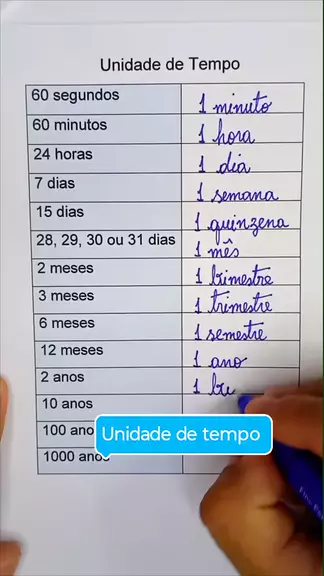 Unidade de Tempo
60 segundos 1 minuto
60 minutos 1 hora
24 horas 1 dia
7 dias 1 semana
15 dias 1 quinzena
28, 29, 30 ou 31 dias 1 mês
2 meses 1 bimestre
3 meses 1 trimestre
6 meses 1 semestre
12 meses 1 ano
2 anos 1 bi
10 anos
100 ano
Unidade de tempo
1000 anos